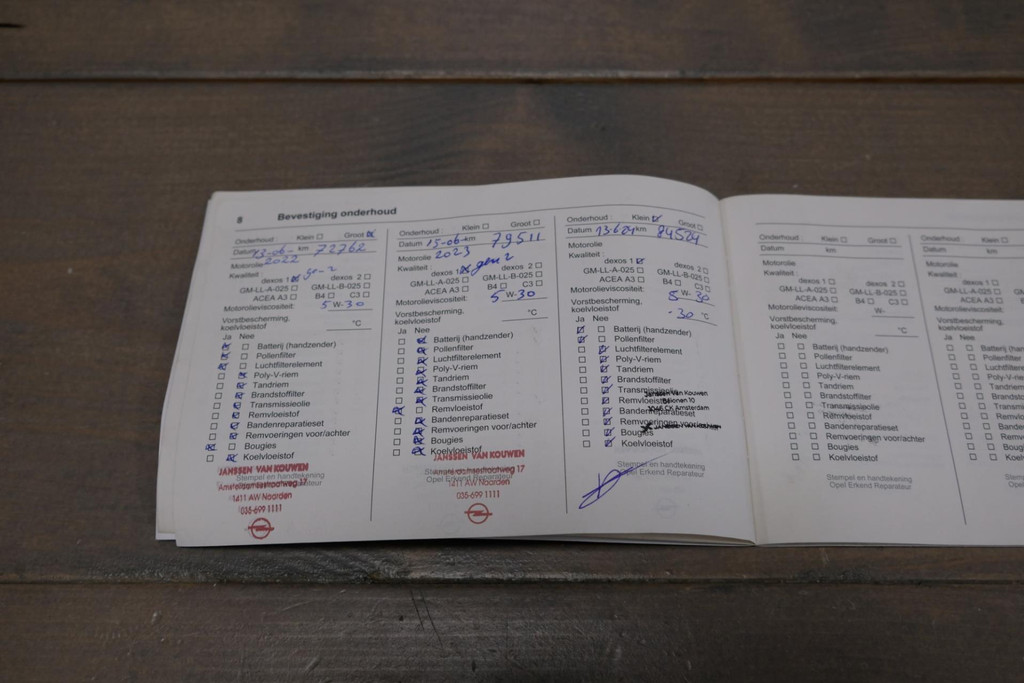 8 Bevestiging onderhoud
Onderhoud : Klein ☐ Groot ☒
Datum 13-06-2022 km 72762
Motorolie
Kwaliteit :
dexos 1 ☒ dexos 2 ☐
GM-LL-A-025 ☐ GM-LL-B-025 ☐
ACEA A3 ☐ B4 ☐ C3 ☐
Motorolieviscositeit: 5 W- 30
Vorstbescherming,
koelvloeistof °C
Ja Nee
Batterij (handzender)
Pollenfilter
Luchtfilterelement
Poly-V-riem
Tandriem
Brandstoffilter
Transmissieolie
Remvloeistof
Bandenreparatieset
Remvoeringen voor/achter
Bougies
Koelvloeistof
JANSSEN VAN KOUWEN
Stempel en handtekening
Amsterdamsestraatweg 17
Opel Erkend Reparateur
1411 AW Naarden
035-699 1111
Onderhoud : Klein ☐ Groot ☐
Datum 15-06-2023 km 79511
Motorolie
Kwaliteit :
dexos 1 ☒ gen 2 dexos 2 ☐
GM-LL-A-025 ☐ GM-LL-B-025 ☐
ACEA A3 ☐ B4 ☐ C3 ☐
Motorolieviscositeit: 5 W- 30
Vorstbescherming,
koelvloeistof °C
Ja Nee
Batterij (handzender)
Pollenfilter
Luchtfilterelement
Poly-V-riem
Tandriem
Brandstoffilter
Transmissieolie
Remvloeistof
Bandenreparatieset
Remvoeringen voor/achter
Bougies
Koelvloeistof
JANSSEN VAN KOUWEN
Stempel en handtekening
Amsterdamsestraatweg 17
Opel Erkend Reparateur
1411 AW Naarden
035-699 1111
Onderhoud : Klein ☑ Groot ☐
Datum 13-6-24 km 84524
Motorolie
Kwaliteit :
dexos 1 ☑ dexos 2 ☐
GM-LL-A-025 ☐ GM-LL-B-025 ☐
ACEA A3 ☐ B4 ☐ C3 ☐
Motorolieviscositeit: 5 W- 30
Vorstbescherming,
koelvloeistof -30 °C
Ja Nee
Batterij (handzender)
Pollenfilter
Luchtfilterelement
Poly-V-riem
Tandriem
Brandstoffilter
Transmissieolie
Janssen Van Kouwen
Remvloeistof
1046 CK Amsterdam
Bandenreparatieset
Remvoeringen voor/achter
Bougies
Koelvloeistof
Stempel en handtekening
Opel Erkend Reparateur
Onderhoud : Klein ☐ Groot ☐
Datum km
Motorolie
Kwaliteit :
dexos 1 ☐ dexos 2 ☐
GM-LL-A-025 ☐ GM-LL-B-025 ☐
ACEA A3 ☐ B4 ☐ C3 ☐
Motorolieviscositeit: W-
Vorstbescherming,
koelvloeistof °C
Ja Nee
Batterij (handzender)
Pollenfilter
Luchtfilterelement
Poly-V-riem
Tandriem
Brandstoffilter
Transmissieolie
Remvloeistof
Bandenreparatieset
Remvoeringen voor/achter
Bougies
Koelvloeistof
Stempel en handtekening
Opel Erkend Reparateur
Onderhoud : Klein ☐
Datum km
Motorolie
Kwaliteit :
dexos 1 ☐
GM-LL-A-025 ☐
ACEA A3 ☐
Motorolieviscositeit:
Vorstbescherming,
koelvloeistof
Ja Nee